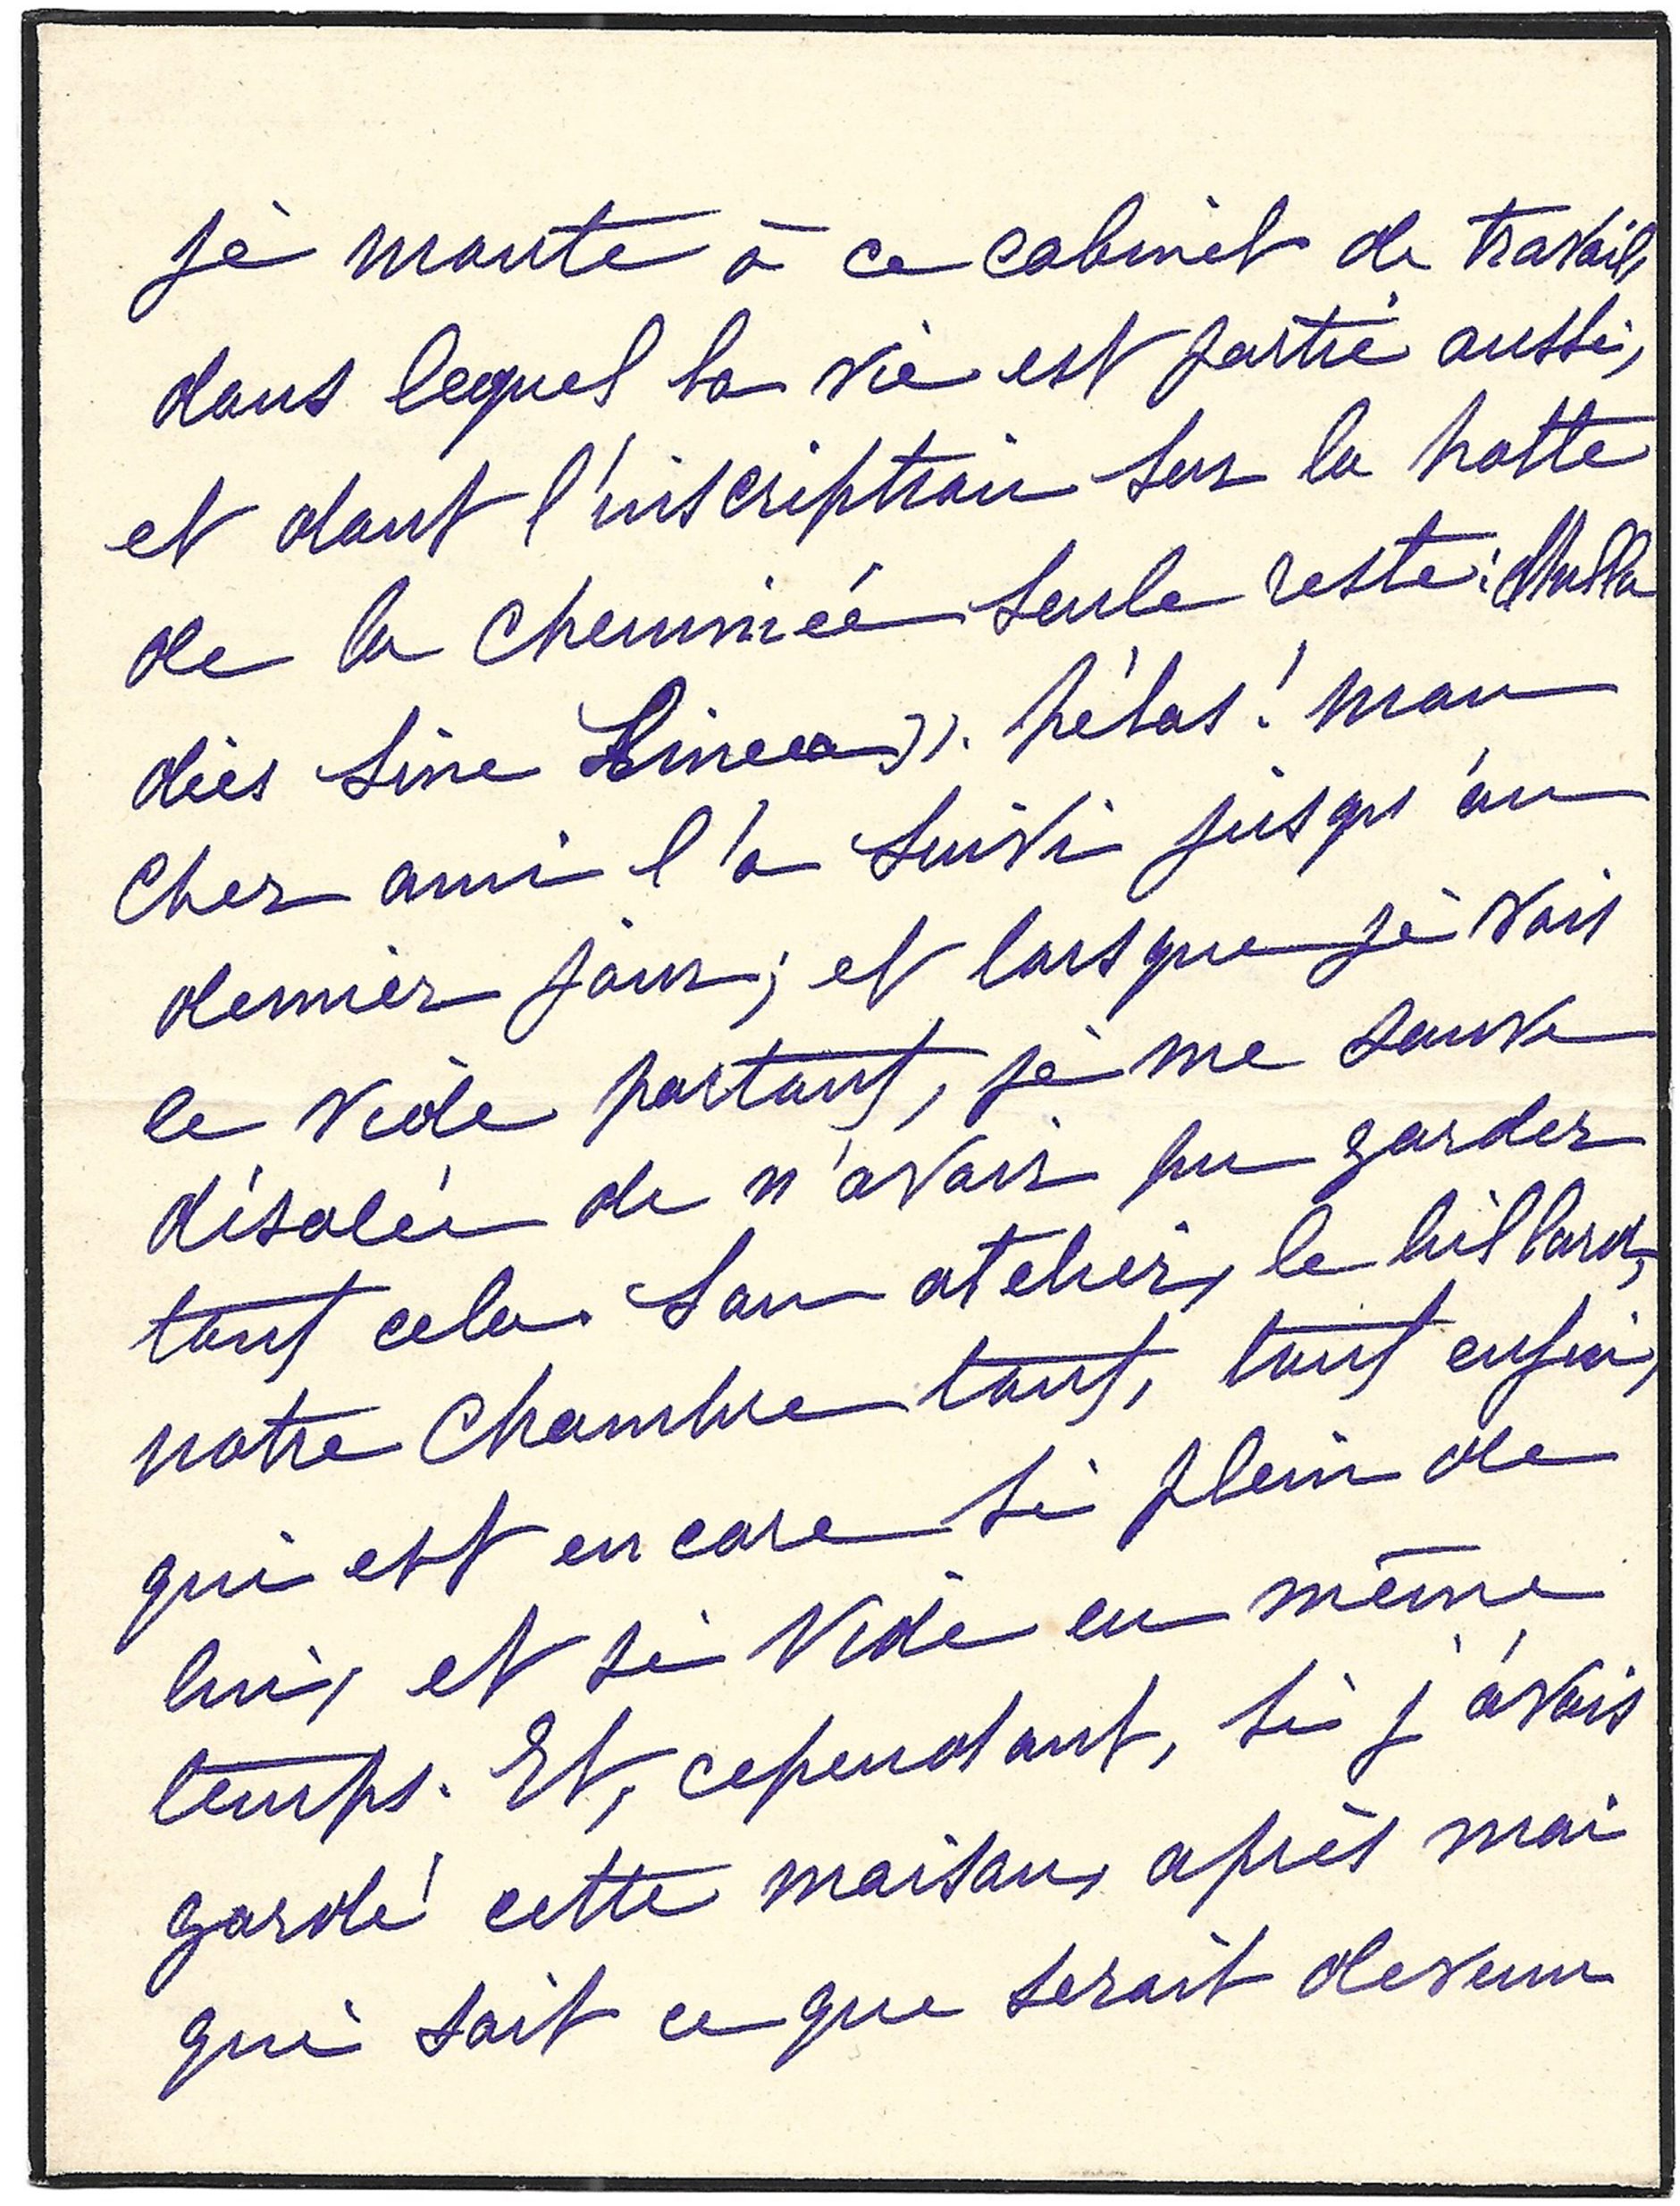 je monte à ce cabinet de travail,
dans lequel la vie est partie aussi,
et dont l'inscription sur la hotte
de la cheminée seule reste : « Nulla
dies sine Linea ». hélas ! mon
cher ami l'a suivi jusqu'au
dernier jour ; et lorsque je vois
le vide partout, je me sauve
désolée de n'avoir pu garder
tout cela. Son atelier, le billard,
notre chambre tout, tout enfin,
qui est encore si plein de
lui, et si vide en même
temps. Et, cependant, si j'avais
gardé cette maison, après moi
qui sait ce que serait devenu